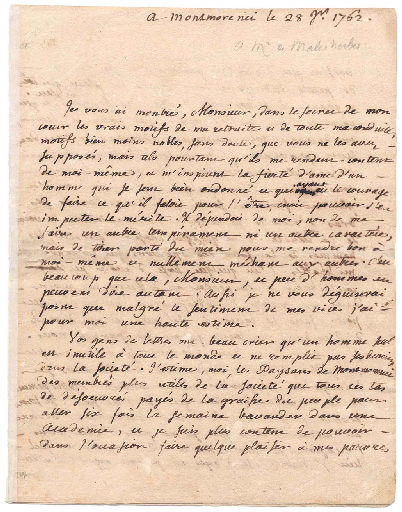 A Montmorenci le 28 Jer 1762.
a Mr de Malesherbes
Je vous ai montré, Monsieur, dans le secret de mon
cœur les vrais motifs de ma retraite et de toute ma conduite,
motifs bien moins nobles, sans doute, que vous ne les avez
supposés, mais tels pourtant qu'ils me rendent content
de moi-même, et m'inspirent la fierté d'ame d'un
homme qui se sent bien ordonné et qui ayant eu le courage
de faire ce qu'il faloit pour l'être croit pouvoir s'en
imputer le mérite. Il dépendoit de moi, non de me
faire un autre tempérament ni un autre caractére,
mais de tirer parti du mien pour me rendre bon à
moi-même et nullement méchant aux autres. C'est
beaucoup que cela, Monsieur, et peu d'hommes en
peuvent dire autant. Aussi je ne vous déguiserai
point que malgré le sentiment de mes vices j'ai
pour moi une haute estime.
Vos gens de lettres ont beau crier qu'un homme seul
est inutile à tout le monde et ne remplit pas ses devoirs
dans la société. J'estime, moi, les Paysans de Montmorenci
des membres plus utiles de la société que tous ces tas
de desœuvrés payés de la graisse du peuple pour
aller six fois la semaine bavarder dans une
Academie, et je suis plus content de pouvoir
dans l'occasion faire quelque plaisir à mes pauvres